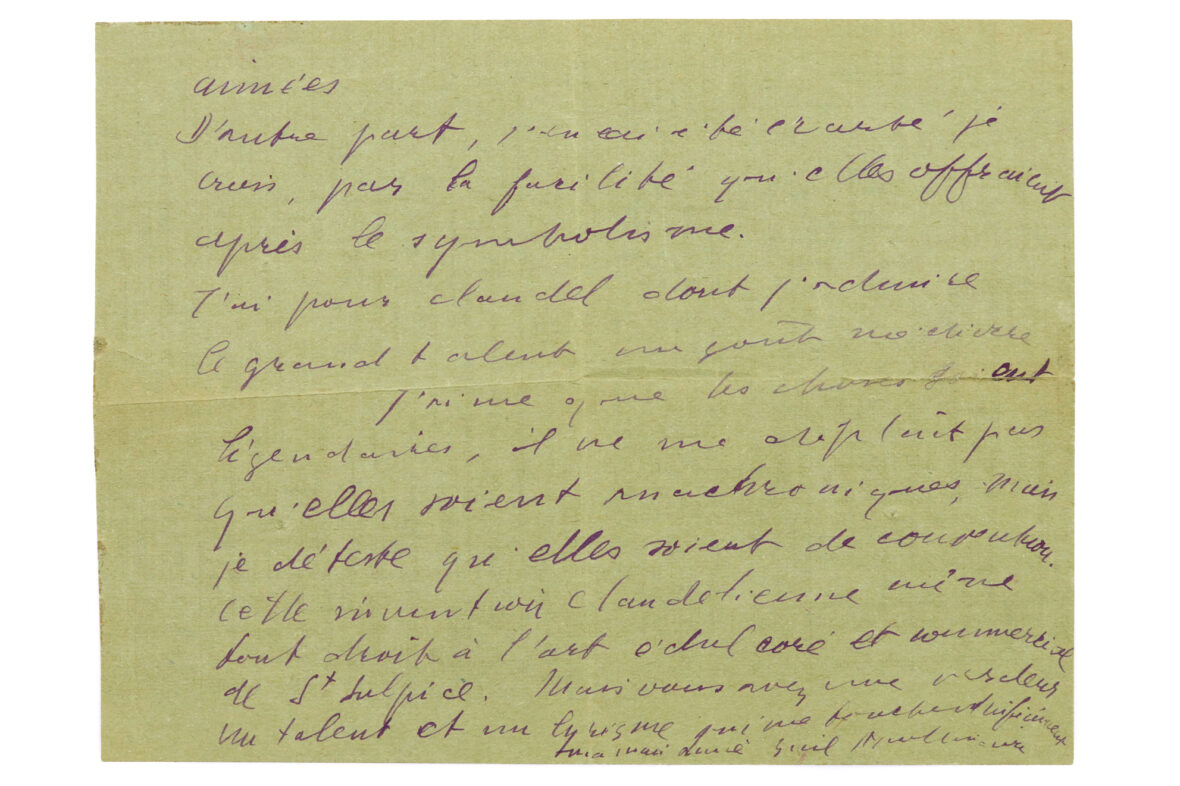 aimées
D'autre part, j'en ai été écarté je
crois, par la facilité qu'elles offraient
après le symbolisme.
J'ai pour claudel dont j'admire
le grand talent un goût médiocre
J'aime que les choses soient
légendaires, il ne me déplaît pas
qu'elles soient anachroniques, mais
je déteste qu'elles soient de convention.
cette invention claudelienne mène
tout droit à l'art édulcoré et commercial
de St Sulpice. Mais vous avez une verdeur
un talent et un lyrisme qui me touchent infiniment
ma main amie Guil Apollinaire